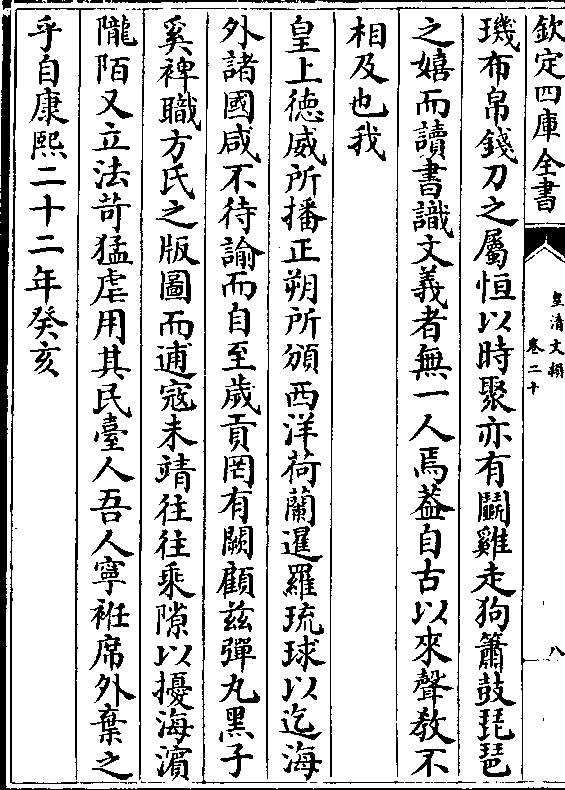 欽定四庫全書
皇清文穎
卷二十
八
璣布帛錢刀之屬恒以時聚亦有鬬雞走狗簫鼓琵琶
之嬉而讀書識文義者無一人焉葢自古以來聲教不
相及也我
皇上德威所播正朔所頒西洋荷蘭暹羅琉球以迄海
外諸國咸不待諭而自至歲貢罔有闕顧兹彈丸黑子
奚裨職方氏之版圖而逋寇未靖往往乘隙以擾海濵
隴陌又立法苛猛虐用其民臺人吾人寧袵席外棄之
乎自康熙二十二年癸亥